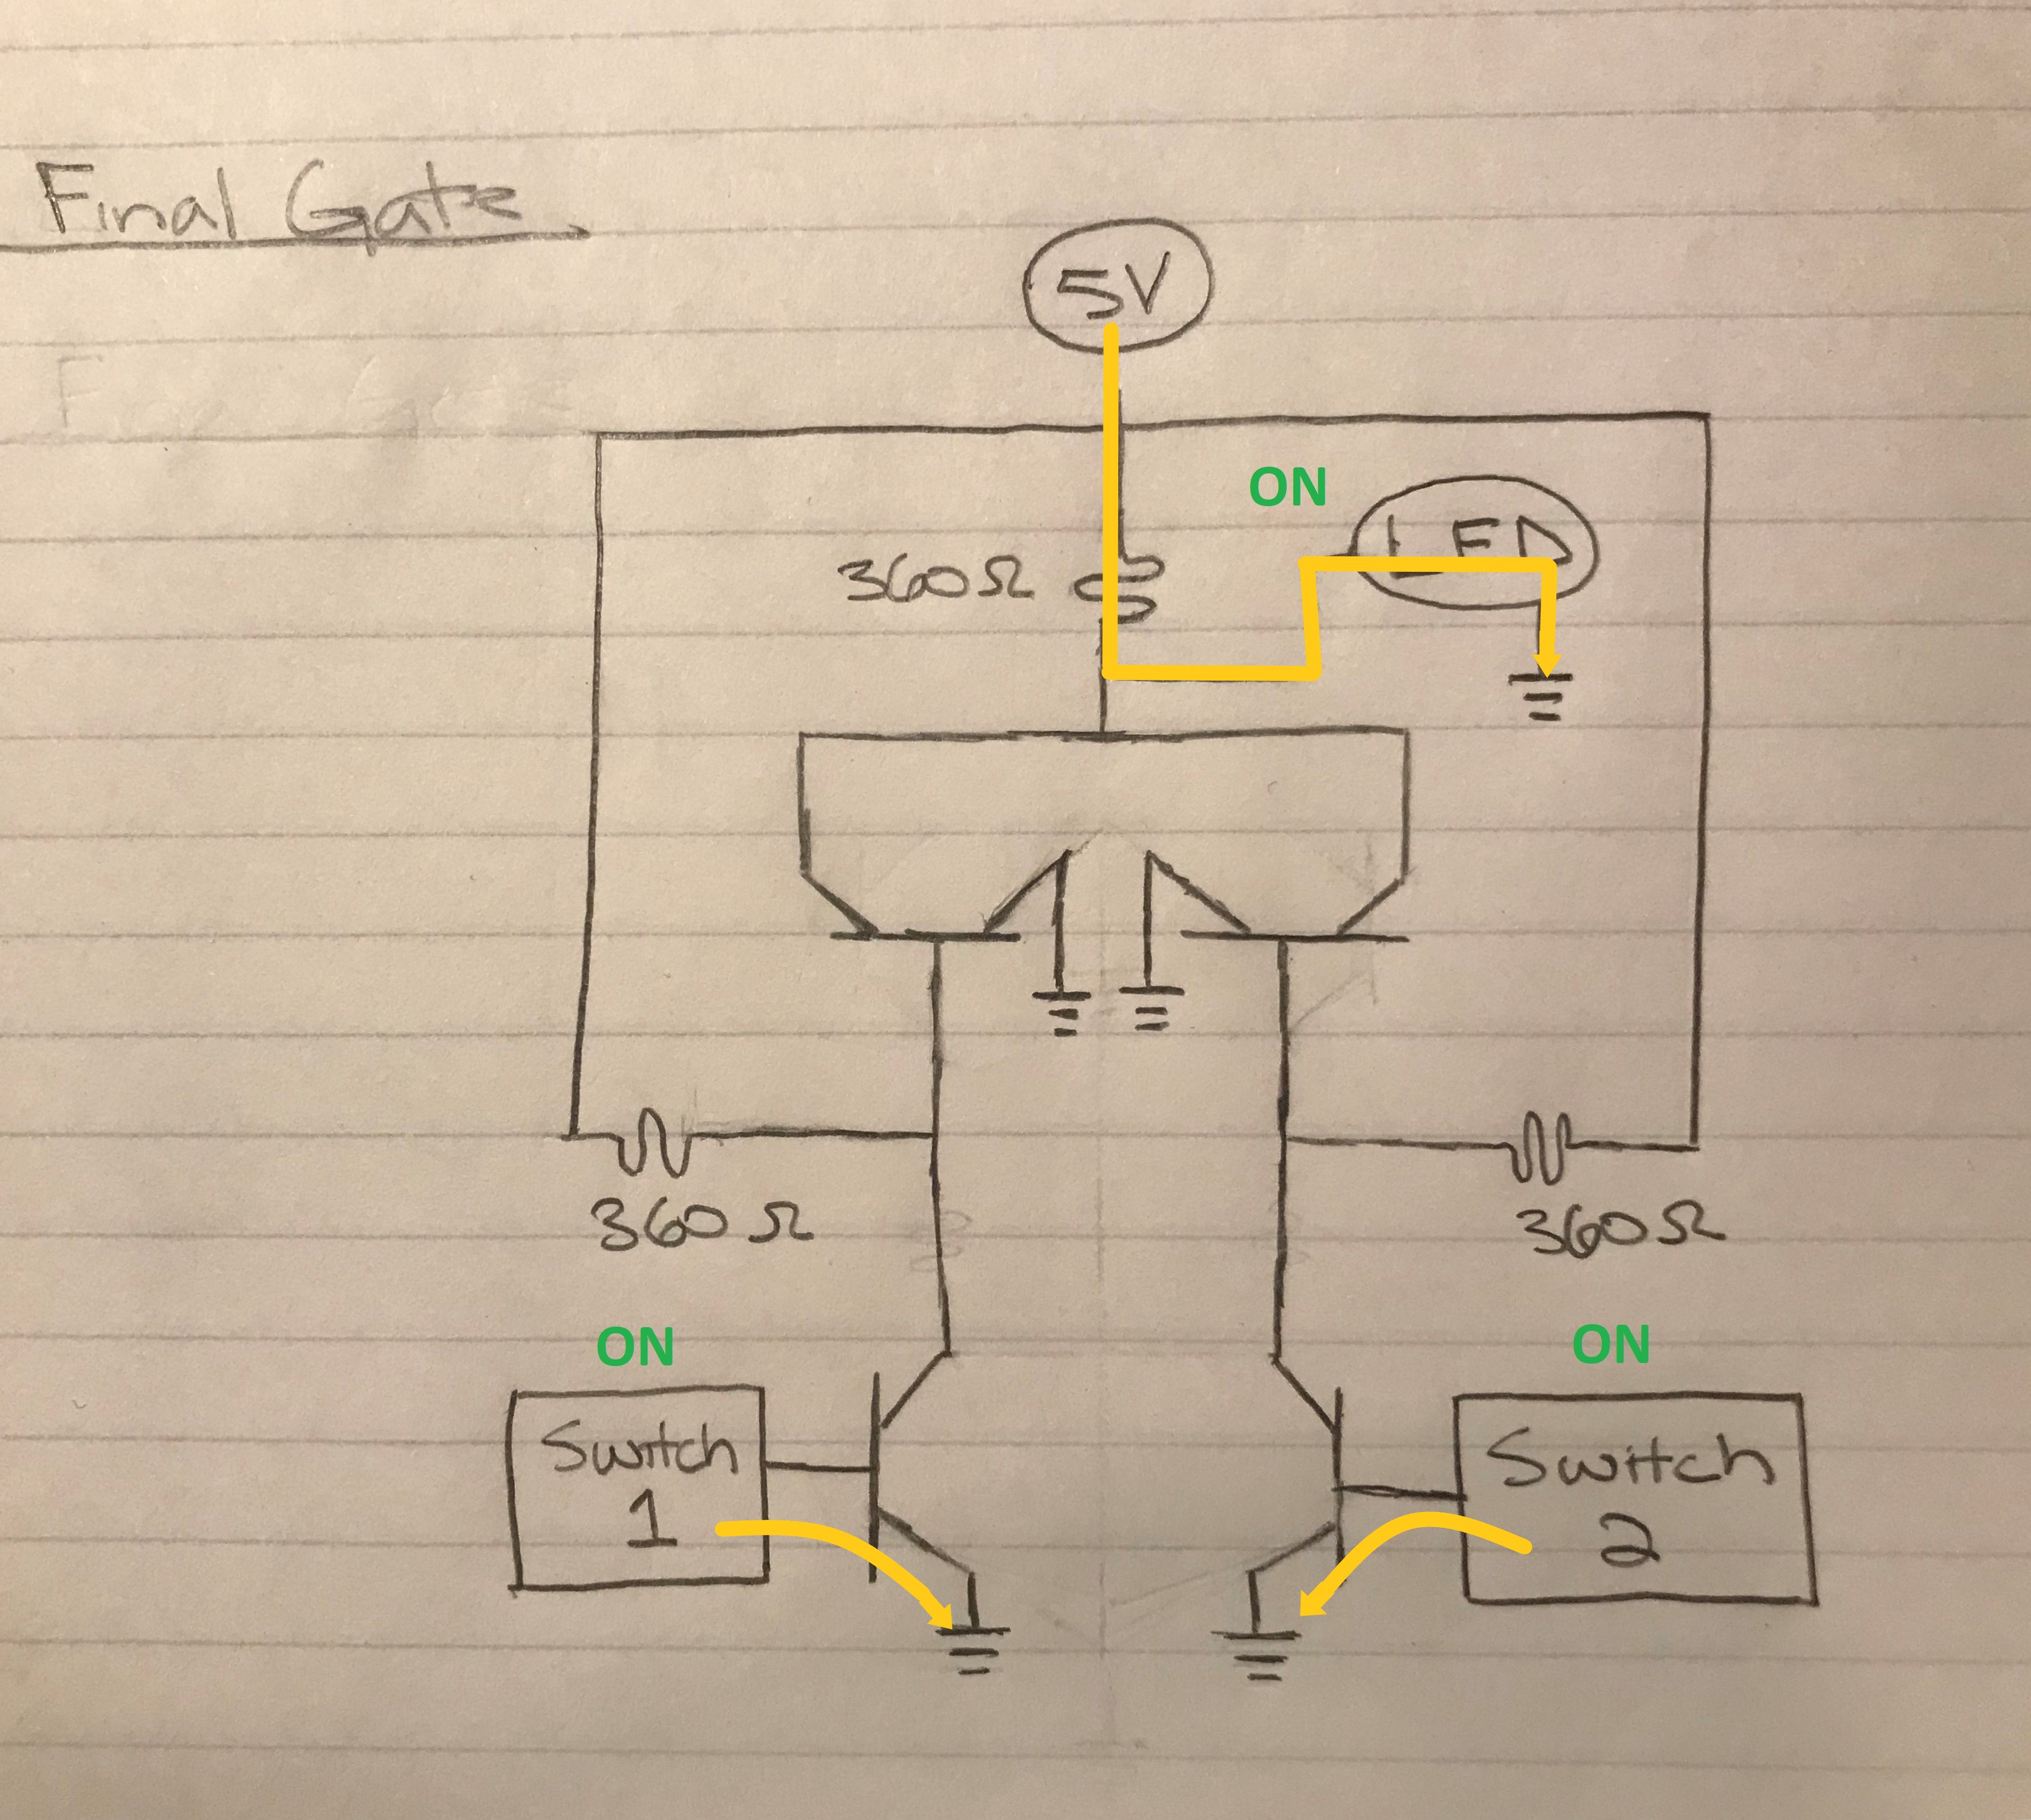 Final Gate
5V
ON
LED
360Ω
360Ω
360Ω
ON
ON
Switch
1
Switch
2